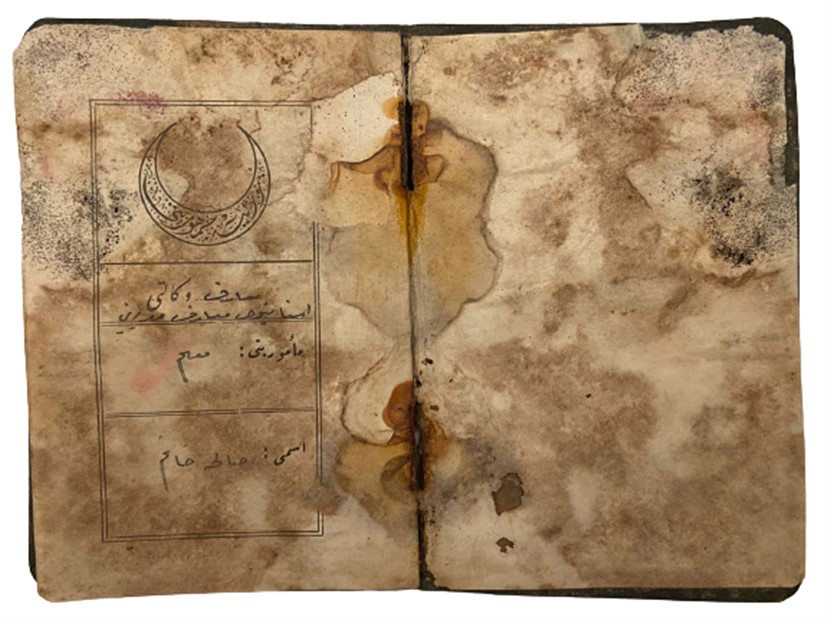 معارف وكالتى
استانبول معارف مديرى
مأموريتى: معلم
اسمى: صالحه خانم